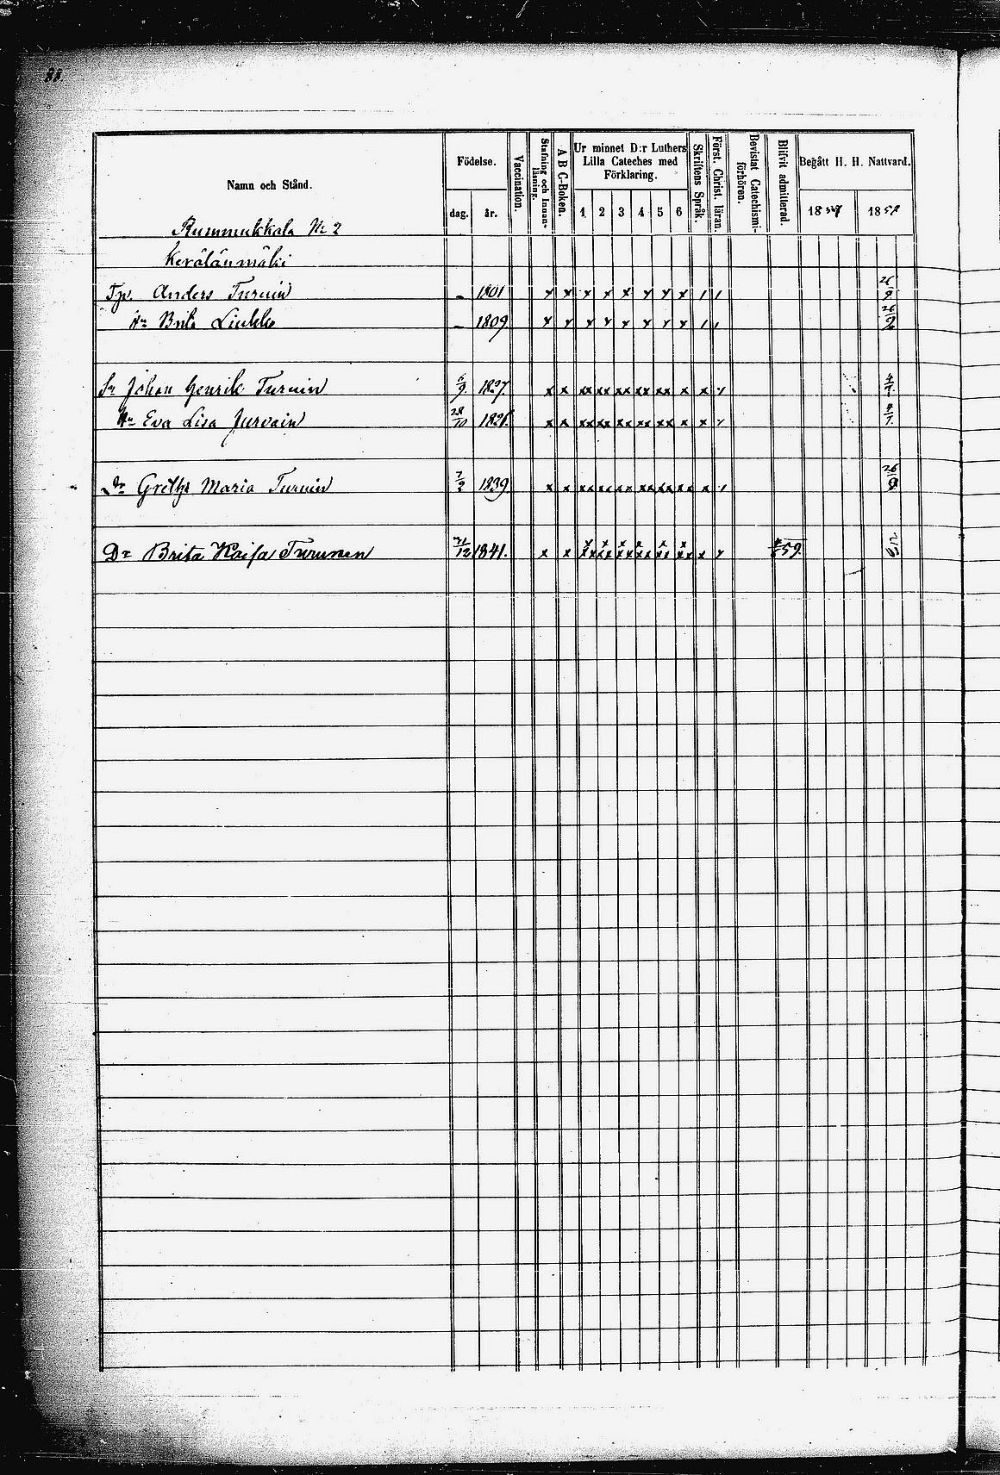 88.
Namn och Stånd. Födelse. Vaccination. Stafning och Innanläsning. A B C-Boken. Ur minnet D:r Luthers Lilla Cateches med Förklaring. Skriftens Språk. Först. Christ. läran. Bevistat Catechismiförhören. Blifvit admitterad. Begått H. H. Nattvard.
dag. år. 1 2 3 4 5 6 18 185
Rummukkala No 2
Kerälänmäki
Anders Turuin - 1801 x x x x x x x x / / 26/9
Hu Brita - 1809 x x x x x x x x / / 26/9
Sn Johan Henrik Turuin 1827. x x xx xx xx xx xx x x 4/7
Hu Eva Lisa Jurvain 28/10 x x xx xx xx xx xx x x
Dr Maria Turuin 1839 x x xx xx xx xx xx xx x / 26/9
Dr Brita Kaisa Turunen 1841. x x x x x x x x x 59.